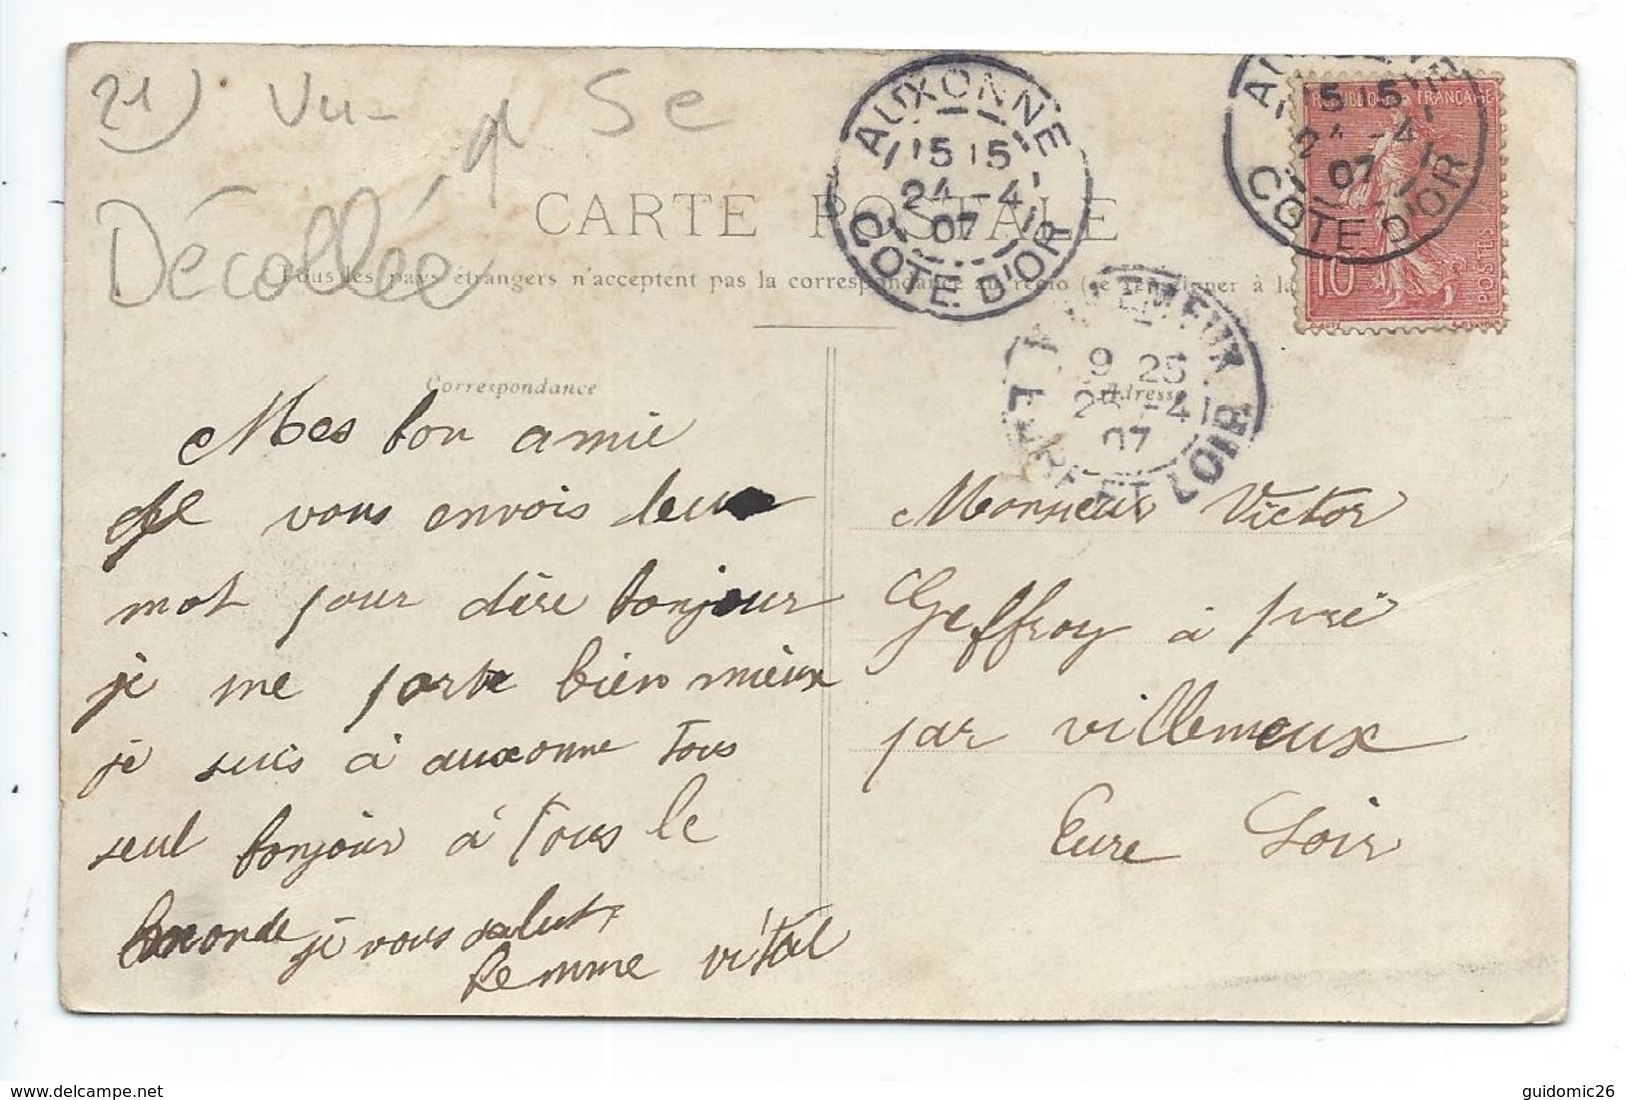 21) Vu- Se
Décollée
CARTE POSTALE
Tous les pays étrangers n'acceptent pas la correspondance au recto (se renseigner à la
AUXONNE
15 15
24 -4
07
COTE D'OR
15 15
24 -4
07
COTE D'OR
REPUBLIQUE FRANÇAISE
10
POSTES
VILLEMEUX
9 25
25 -4
07
EURE ET LOIR
Correspondance
Adresse
Mes bon amie
Je vous envois
mot pour dire bonjour
je me porte bien mieux
je suis à auxonne tous
seul bonjour à tous le
monde je vous salut
femme vital
Monsieur Victor
Geffroy à pré
par villemeux
Eure Loir
www.delcampe.net
guidomic26